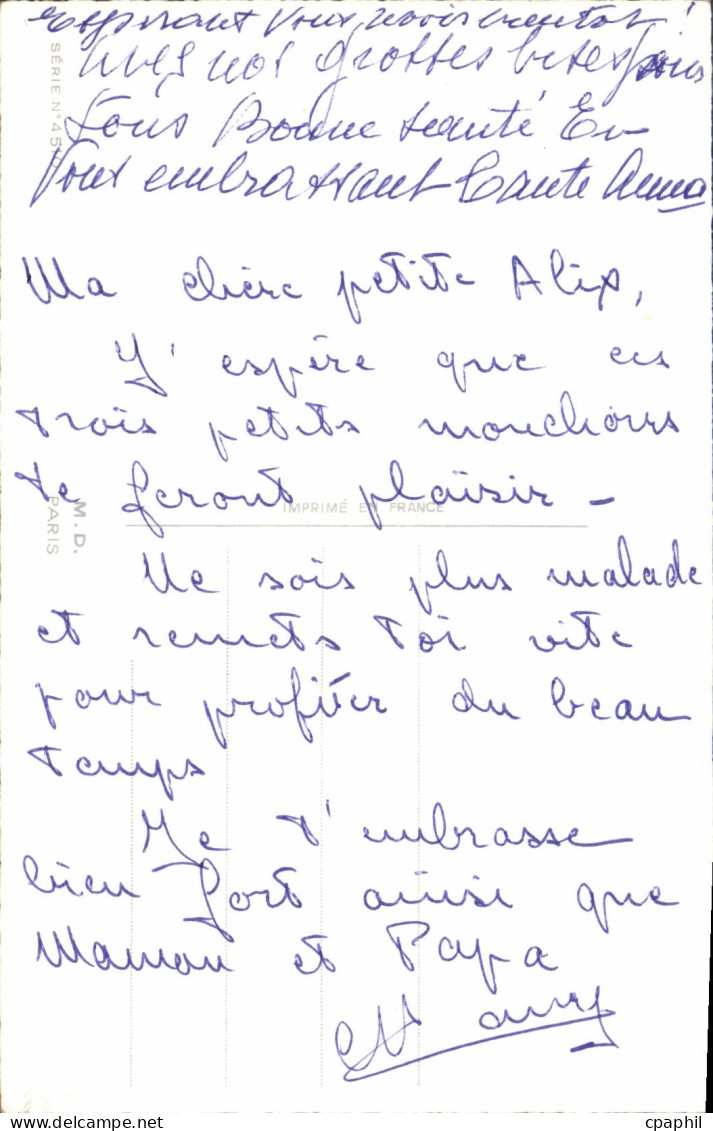 Espérant vous revoir bientot !
grosses bises pour
Tous Bonne santé En
Vous embrassant Tante Anna
Ma chère petite Alix,
J'espère que ces
trois petits mouchoirs
te feront plaisir -
Ne sois plus malade
et remets toi vite
pour profiter du beau
temps
Je t'embrasse
bien fort ainsi que
Maman et Papa
SÉRIE N° 451
M. D.
PARIS
IMPRIMÉ EN FRANCE
cpaphil